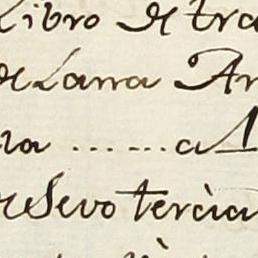 Libro de tra
de Lana An
la ....... a 1
de Sevo tercia